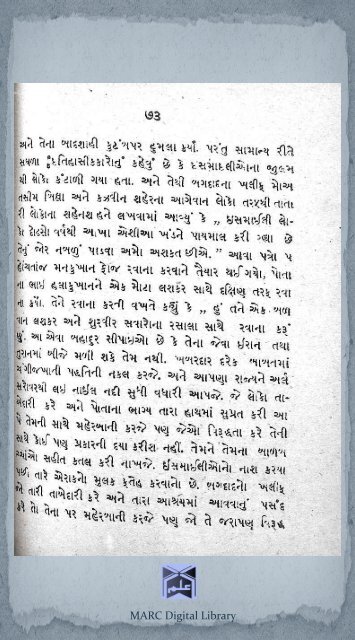 ૭૩
અને તેના બાદશાહી કુટંબપર હુમલા કર્યા. પરંતુ સામાન્ય રીતે
સઘળા ઇતિહાસીકકારોનું કહેવું છે કે ઇસમાઇલીઓના જુલમ
થી લોકો કંટાળી ગયા હતા. અને તેથી બગદાદના ખલીફ મોઅ
તસીમ બિલા અને કઝવીન શહેરના આગેવાન લોકો તરફથી તાતા
રી લોકોના શહેનશાહને લખવામાં આવ્યું કે ,, ઇસમાઈલી લો-
કો દોઢસો વર્ષથી આખા એશીઆ ખંડને પાયમાલ કરી રહ્યા છે
તેનું જોર નબળું પાડવા અમો અશક્ત છીએ. ” આવા પત્રો પ
હોંચતાંજ મનકુખાન ફોજ રવાના કરવાને તૈયાર થઈ ગયો, પોતા
ના ભાઈ હલાકુખાનને એક મોટા લશકર સાથે દક્ષિણ તરફ રવા
ના કર્યો. તેને રવાના કરતી વખતે કહ્યું કે ,, હું તને એક બળ
વાન લશકર અને શુરવીર સવારોના રસાલા સાથે રવાના કરૂં
છું. આ એવા બહાદુર સીપાઇઓ છે કે તેના જેવા ઈરાન તથા
તુરાનમાં બીજે મળી શકે તેમ નથી. ખબરદાર દરેક બાબતમાં
ચંગીજખાની પદ્ધતિની નકલ કરજે. અને આપણા રાજ્યને અલે
સરોવરથી લઇ નાઈલ નદી સુધી વધારી આપજે. જે લોકો તા-
બેદારી કરે અને પોતાના ભાગ્ય તારા હાથમાં સુપ્રત કરી આ
પે તેમની સાથે મહેરબાની કરજે પણ જેઓ વિરૂદ્ધતા કરે તેની
સાથે કોઈ પણ પ્રકારની દયા કરીશ નહીં. તેમને તેમના બાળબ
ચ્ચાંઓ સહીત કતલ કરી નાખજે. ઈસમાઈલીઓનો નાશ કરયા
પછી તારે એરાકનો મુલક ફતેહ કરવાનો છે. બગદાદનો ખલીફ
જો તારી તાબેદારી કરે અને તારા આશ્રયમાં આવવાનું પસંદ
કરે તો તેના પર મહેરબાની કરજે પણ જો તે જરાપણ વિરૂદ્ધ
MARC Digital Library